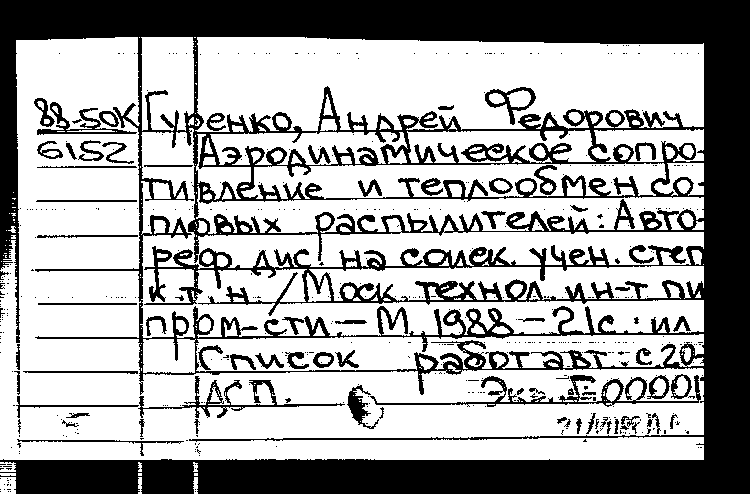 88-50К Гуренко, Андрей Федорович
6152 Аэродинамическое сопро-
тивление и теплообмен со-
пловых распылителей: Авто-
реф. дис. на соиск. учен. степ
к.т.н. / Моск. технол. ин-т пи
пром-сти. — М., 1988. — 21с.: ил
Список работ авт.: с. 20-
ДСП. Экз.